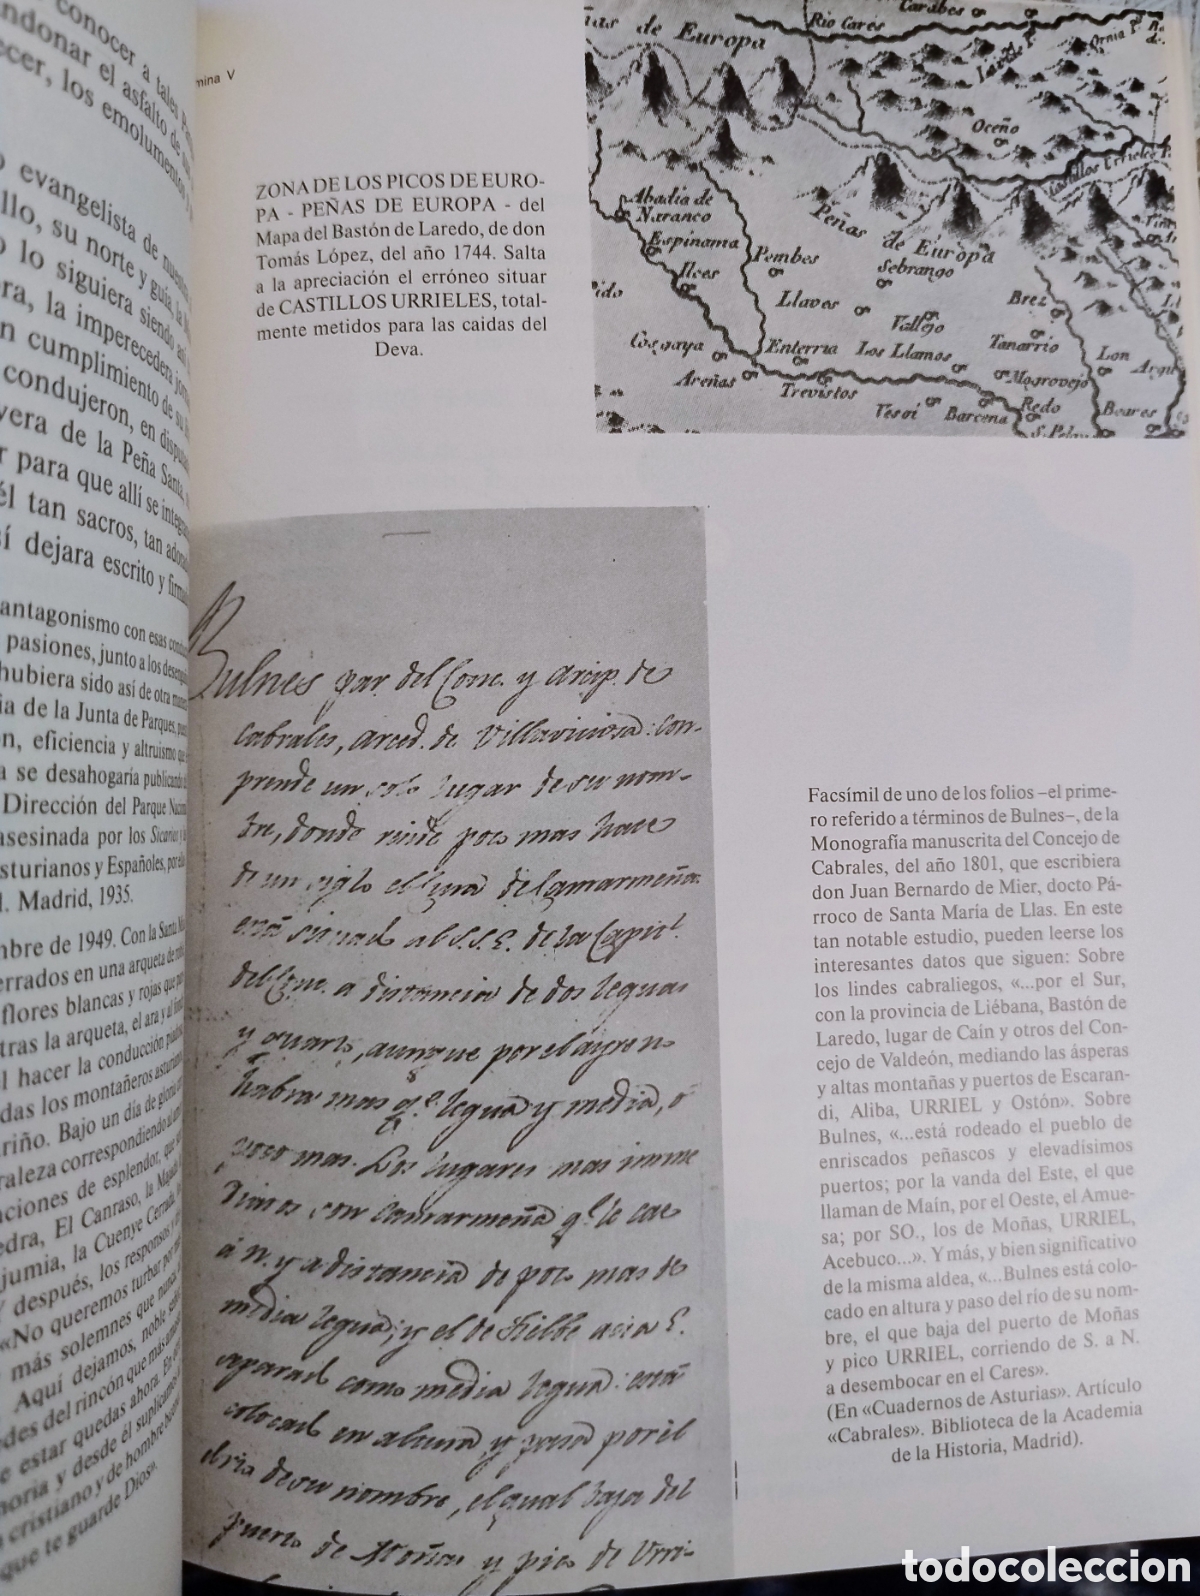 conocer a tales
donar el asfalto de
cer, los emolumentos
evangelista de
llo, su norte y guía, la
o lo siguiera siendo así
ra, la imperecedera
n cumplimiento de su
condujeron, en
vera de la Peña Santa,
r para que allí se
él tan sacros, tan
sí dejara escrito y
antagonismo con esas
pasiones, junto a los
hubiera sido así de otra
ia de la Junta de Parques,
on, eficiencia y altruismo
a se desahogaría publicando
Dirección del Parque
asesinada por los Sicarios
sturianos y Españoles, por
l. Madrid, 1935.
mbre de 1949. Con la Santa
errados en una arqueta de
flores blancas y rojas que
tras la arqueta, el ara y al
l hacer la conducción
das los montañeros
riño. Bajo un día de gloria
raleza correspondiendo al
ciones de esplendor, que
edra, El Canraso, la Majada
jumia, la Cuenye Cerrada,
Y después, los responsos y
«No queremos turbar por
más solemnes que nunca
Aquí dejamos, noble señor
des del rincón que más
e estar quedas ahora. En
moria y desde él
cristiano y de hombre
que te guarde Dios».
mina V
ZONA DE LOS PICOS DE EURO-
PA - PEÑAS DE EUROPA - del
Mapa del Bastón de Laredo, de don
Tomás López, del año 1744. Salta
a la apreciación el erróneo situar
de CASTILLOS URRIELES, total-
mente metidos para las caidas del
Deva.
Carabes
Rio Cares
ñas de Europa
Ornia
Oceño
Castillos Urrieles
Abadia de
Naranco
Peñas de Europa
Espinama
Pembes
Sebrango
Ilces
Brez
Pido
Llaves
Vallejo
Tanarrio
Cosgaya
Enterria
Los Llamos
Lon
Argu
Areñas
Trevistos
Mogrovejo
Vesoi
Barcena
Redo
Beares
S. Pelay
Bulnes par. del Conc. y arcip. de
Cabrales, arced. de Villaviciosa: com-
prende un solo lugar de su nom-
bre, donde rinde poco mas hace
de un siglo el Cura de Camarmeña.
está situado al S.S.E. de la Capit.l
del Conc. a distancia de dos leguas
y quarto, aunque por el ayre no
habrá mas q.e legua y media, ó
poco mas. Los lugares mas inme
diatos son Camarmeña q.e le cae
á N. y a distancia de poco mas de
media legua; y el de Tielbe acia E.
separado como media legua: está
colocad en altura y pasa por él
el rio de su nombre, el qual baja del
puerto de Moñas y pico de Urri-
Facsímil de uno de los folios –el prime-
ro referido a términos de Bulnes–, de la
Monografía manuscrita del Concejo de
Cabrales, del año 1801, que escribiera
don Juan Bernardo de Mier, docto Pá-
rroco de Santa María de Llas. En este
tan notable estudio, pueden leerse los
interesantes datos que siguen: Sobre
los lindes cabraliegos, «...por el Sur,
con la provincia de Liébana, Bastón de
Laredo, lugar de Caín y otros del Con-
cejo de Valdeón, mediando las ásperas
y altas montañas y puertos de Escaran-
di, Aliba, URRIEL y Ostón». Sobre
Bulnes, «...está rodeado el pueblo de
enriscados peñascos y elevadísimos
puertos; por la vanda del Este, el que
llaman de Maín, por el Oeste, el Amue-
sa; por SO., los de Moñas, URRIEL,
Acebuco...». Y más, y bien significativo
de la misma aldea, «...Bulnes está colo-
cado en altura y paso del río de su nom-
bre, el que baja del puerto de Moñas
y pico URRIEL, corriendo de S. a N.
a desembocar en el Cares».
(En «Cuadernos de Asturias». Artículo
«Cabrales». Biblioteca de la Academia
de la Historia, Madrid).
todocoleccion